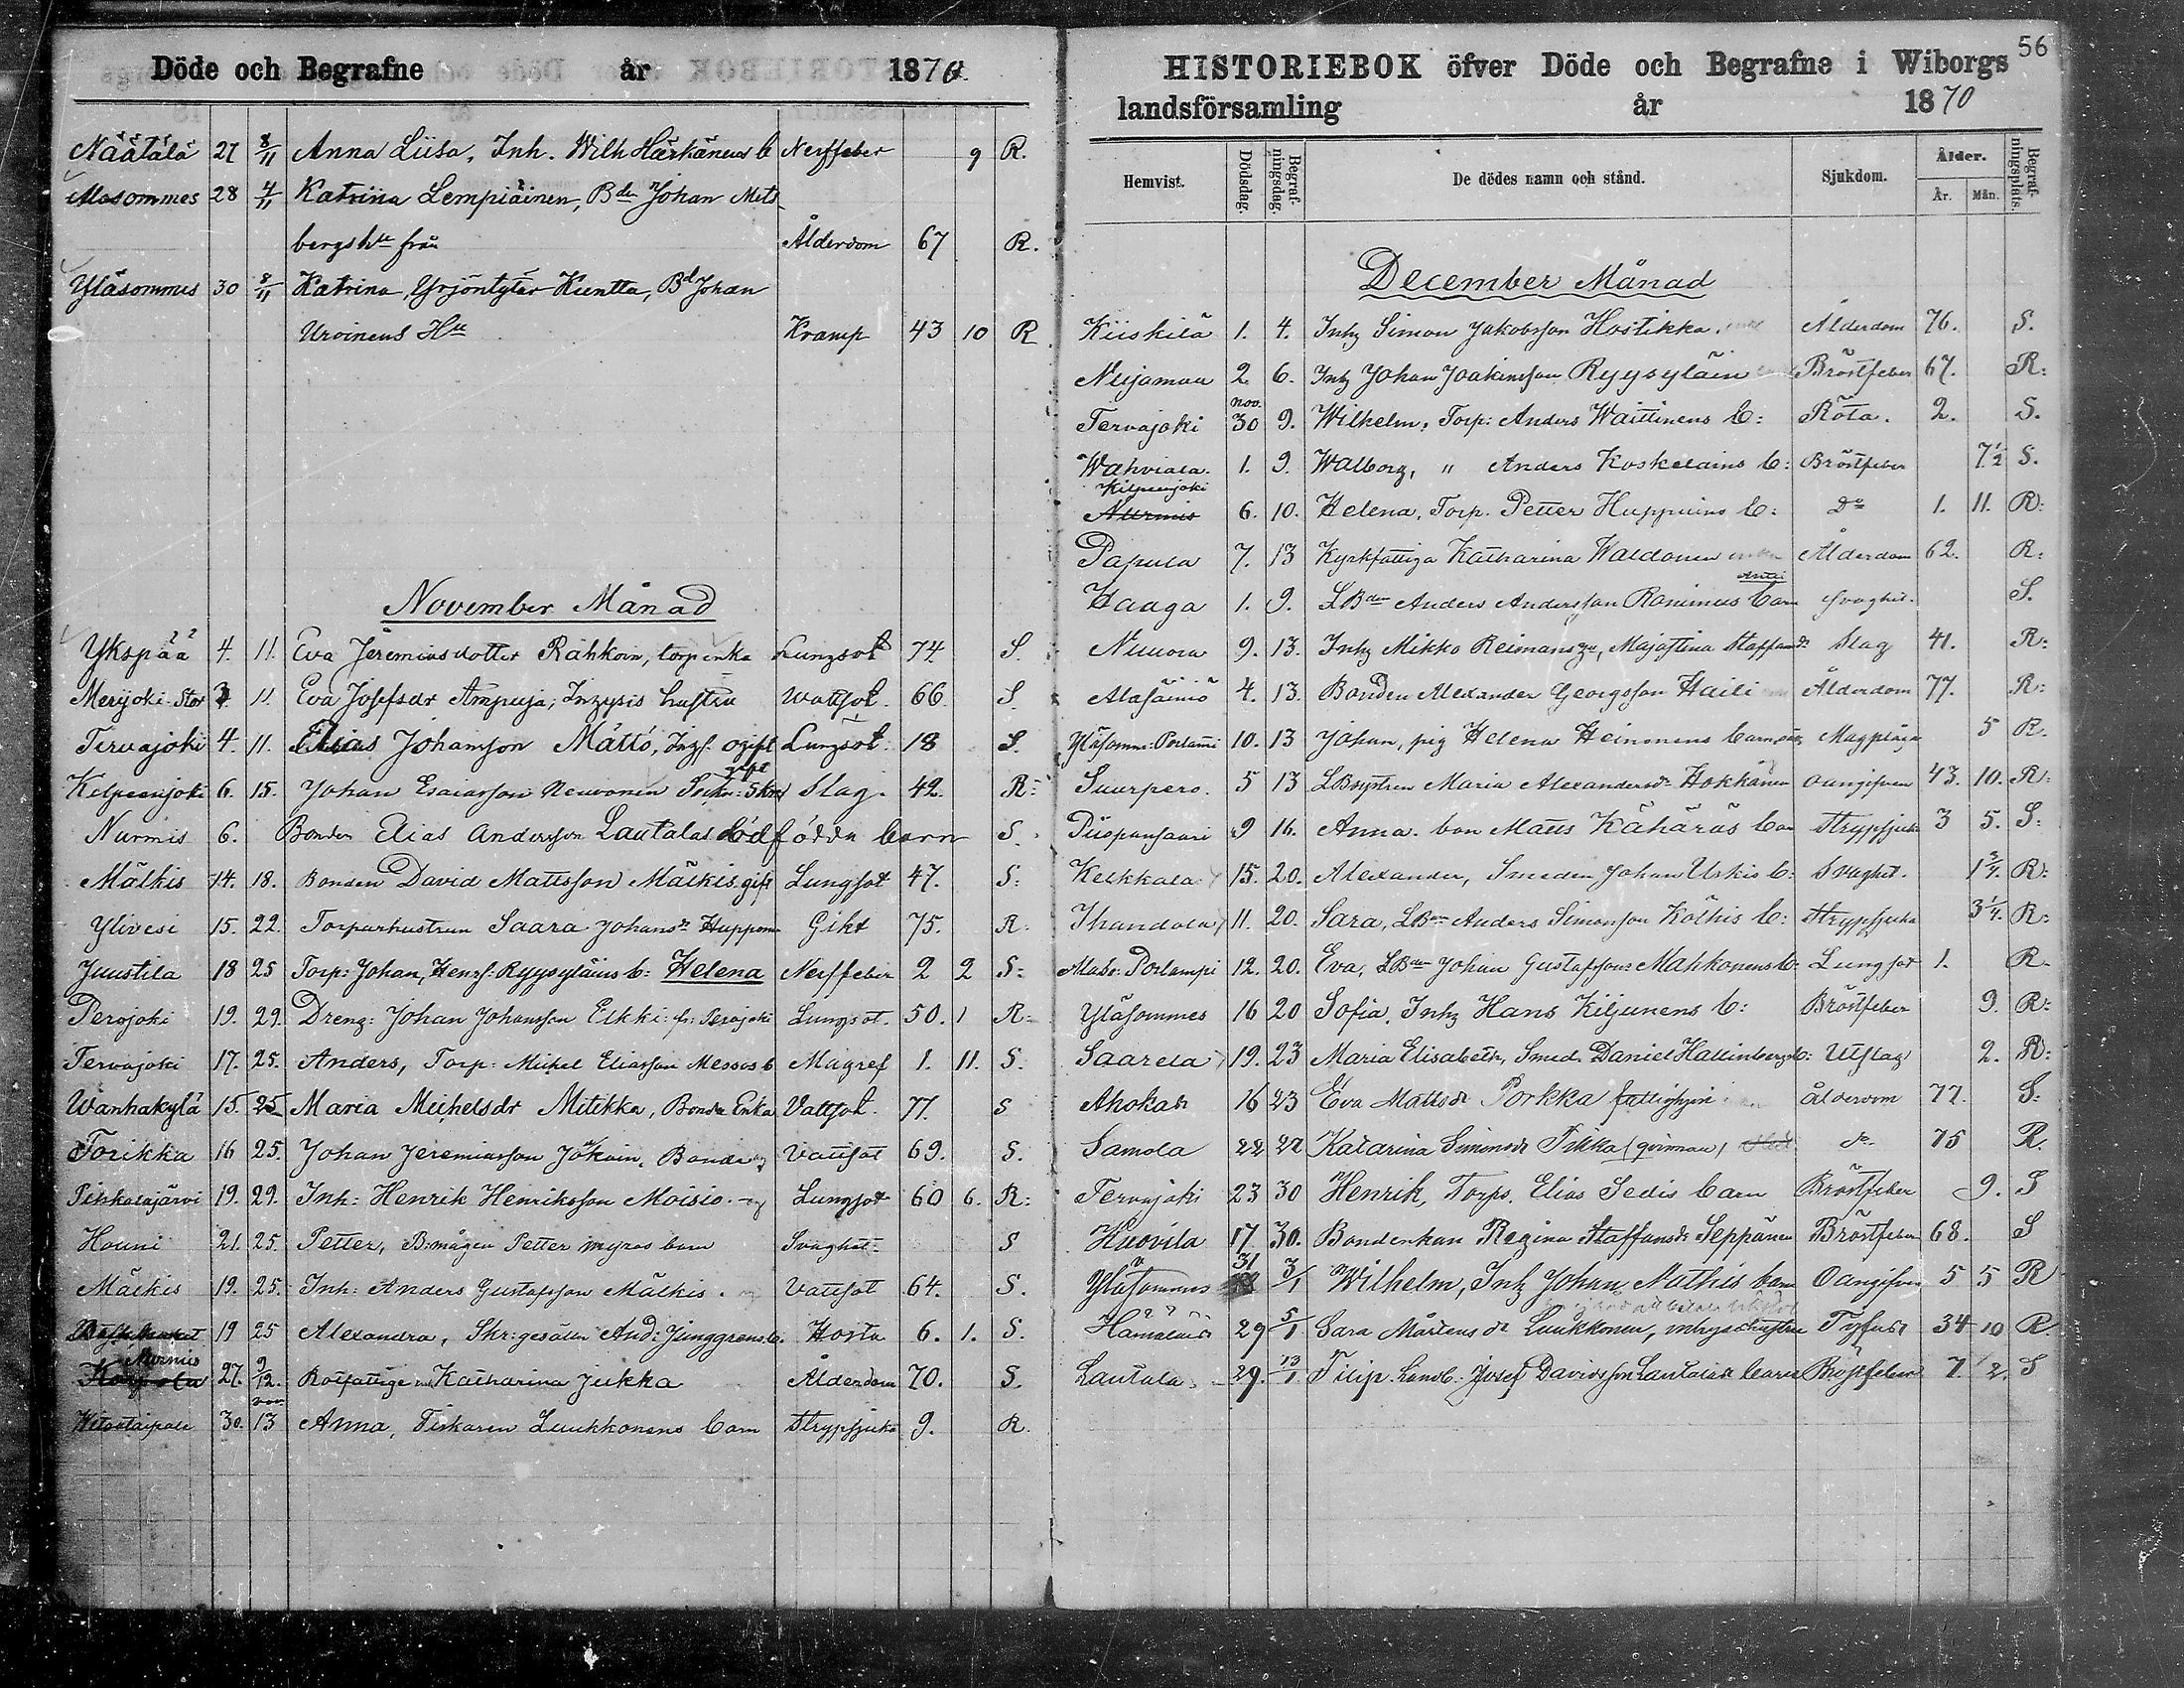 Döde och Begrafne år 1870.
Näätälä 27 8/11 Anna Liisa, Inh. Wilh Härkänens b Nerffeber 9 R.
Alasommes 28 4/11 Katriina Lempiäinen, Bde Johan Mets
bergs h från Ålderdom 67 R.
Yläsommes 30 8/11 Katrina Yrjöntytär Kientta, Bd Johan
Uroinens Hu Kramp 43 10 R
November Månad
Ykspää 4. 11. Eva Jeremiasdotter Rähkoin, torp enka Lungsot 74 S.
Merijoki Stor 3. 11. Eva Josefsdr Ampuja, Inhysis hustru Wattsot. 66 S.
Tervajoki 4. 11. Elias Johansson Mättö, Inhs. ogift Lungsot. 18 S.
gift
Kilpeenjoki 6. 15. Johan Esaiasson Neuvonen Slag. 42. R:
Nurmis 6. Bonden Elias Andersson Lautalas dödfödda barn S.
Mälkis 14. 18. Bonden David Mattsson Mälkis gift Lungsot 47. S:
Ylivesi 15. 22. Torparhustrun Saara Johansdr Huppon Gikt 75. R.
Juustila 18 25 Torp: Johan, Henrs: Ryysyläins b: Helena Nerffeber 2 2 S:
Perojoki 19. 29. Dreng: Johan Johansson Eikki: fr: Perojoki Lungsot. 50. 1 R.
Tervajoki 17. 25. Anders, Torp: Mickel Eliasson Messos b Magref 1. 11. S.
Wanhakylä 15. 25 Maria Michelsdr Mitikka, Bonde Enka Vattsot. 77. S
Torikka 16 25. Johan Jeremiasson Jokoin, Bonde Vattsot 69. S.
Pihkalajärvi 19. 29. Inh: Henrik Henriksson Moisio. Lungsot 60 6. R:
Houni 21. 25. Petter, B:mågen Petter Myräs barn Svaghet. S
Mälkis 19. 25. Inh: Anders Gustafsson Mälkis. Vattsot 64. S.
19 25 Alexandra, Skr:gesällen And: Junggrens b. Hosta 6. 1. S.
Nurmis
Karpola 27. 9/12. Rotfattige Katharina Jukka Ålderdom 70. S.
nov
30. 13 Anna, Fiskaren Luukkonens barn Strypsjuka 9. R.
56
HISTORIEBOK öfver Döde och Begrafne i Wiborgs
landsförsamling år 1870
Hemvist. Dödsdag. Begrafningsdag. De dödes namn och stånd. Sjukdom. Ålder. År. Mån. Begrafningsplats.
December Månad
Kiiskilä 1. 4. Inhy Simon Jakobsson Hostikka. Ålderdom 76. S.
Nuijamaa 2. 6. Inhy Johan Joakimsson Ryysyläin Bröstfeber 67. R:
nov.
Tervajoki 30 9. Wilhelm, Torp: Anders Waittinens b: Röta. 2. S.
Wahviala. 1. 9. Walborg, " Anders Koskelains b: Bröstfeber 7 1/2 S.
Kilpeenjoki
Nurmis 6. 10. Helena, Torp. Petter Huppoins b: Do 1. 11. R:
Papula 7. 13 Kyrkfattiga Katharina Waldonen enka Ålderdom 62. R:
Antti
Haaga 1. 9. LBden Anders Andersson Ronimus barn Svaghet. S.
Nuuora 9. 13. Inhy Mikko Reimans, Majastina Staffansdr Slag 41. R:
Alasäiniö 4. 13. Bonden Alexander Georgsson Haili Ålderdom 77. R:
Yläsomme: Porlami 10. 13 Johan, pig Helena Heinonens barn, Magplåga 5 R.
Suurpero. 5 13 Maria Alexandersdr Hokkanen oangifven 43. 10. R:
Piispansaari 9 16. Anna. bon Matts Kähäräs barn Strypsjuka 3 5. S:
Kelkkala 15. 20. Alexander, Smeden Johan Urkis b: Svaghet. 1 3/4. R:
Ihandala 11. 20. Sara, LBden Anders Simonsson Köthis b: Strypsjuka 3 1/4. R:
Alaso: Porlampi 12. 20. Eva, LBden Johan Gustafssons Mahkonens b: Lungsot 1. R.
Yläsommes 16 20 Sofia, Inhy Hans Kiljunens b: Bröstfeber 9. R:
Saarela 19. 23 Maria Elisabeth, Smed. Daniel Hallinbergs b: Utslag 2. R:
Ahokas 16 23 Eva Mattsdr Porkka fattighjon ålderdom 77. S:
Samola 22 27 Katarina Simonsdr Pikka (qvinnan) do 75 R.
Tervajoki 23 30 Henrik, Torps. Elias Sedis barn Bröstfeber 9. S
Huovila 17 30. Bondenkan Regina Staffansdr Seppänen Bröstfeber 68. S
31
Yläsommes 3/1 Wilhelm, Inhy Johan Mathis barn Oangifven 5 5 R
Hämäläis 29 5/1 Sara Mårtensdr Luukkonen, inhyse hustru Tyfus 34 10 R.
Lautala. 29. 13/1 Filip. Landb. Josef Davidsson Lautalas barn Bröstfeber 7. 2. S